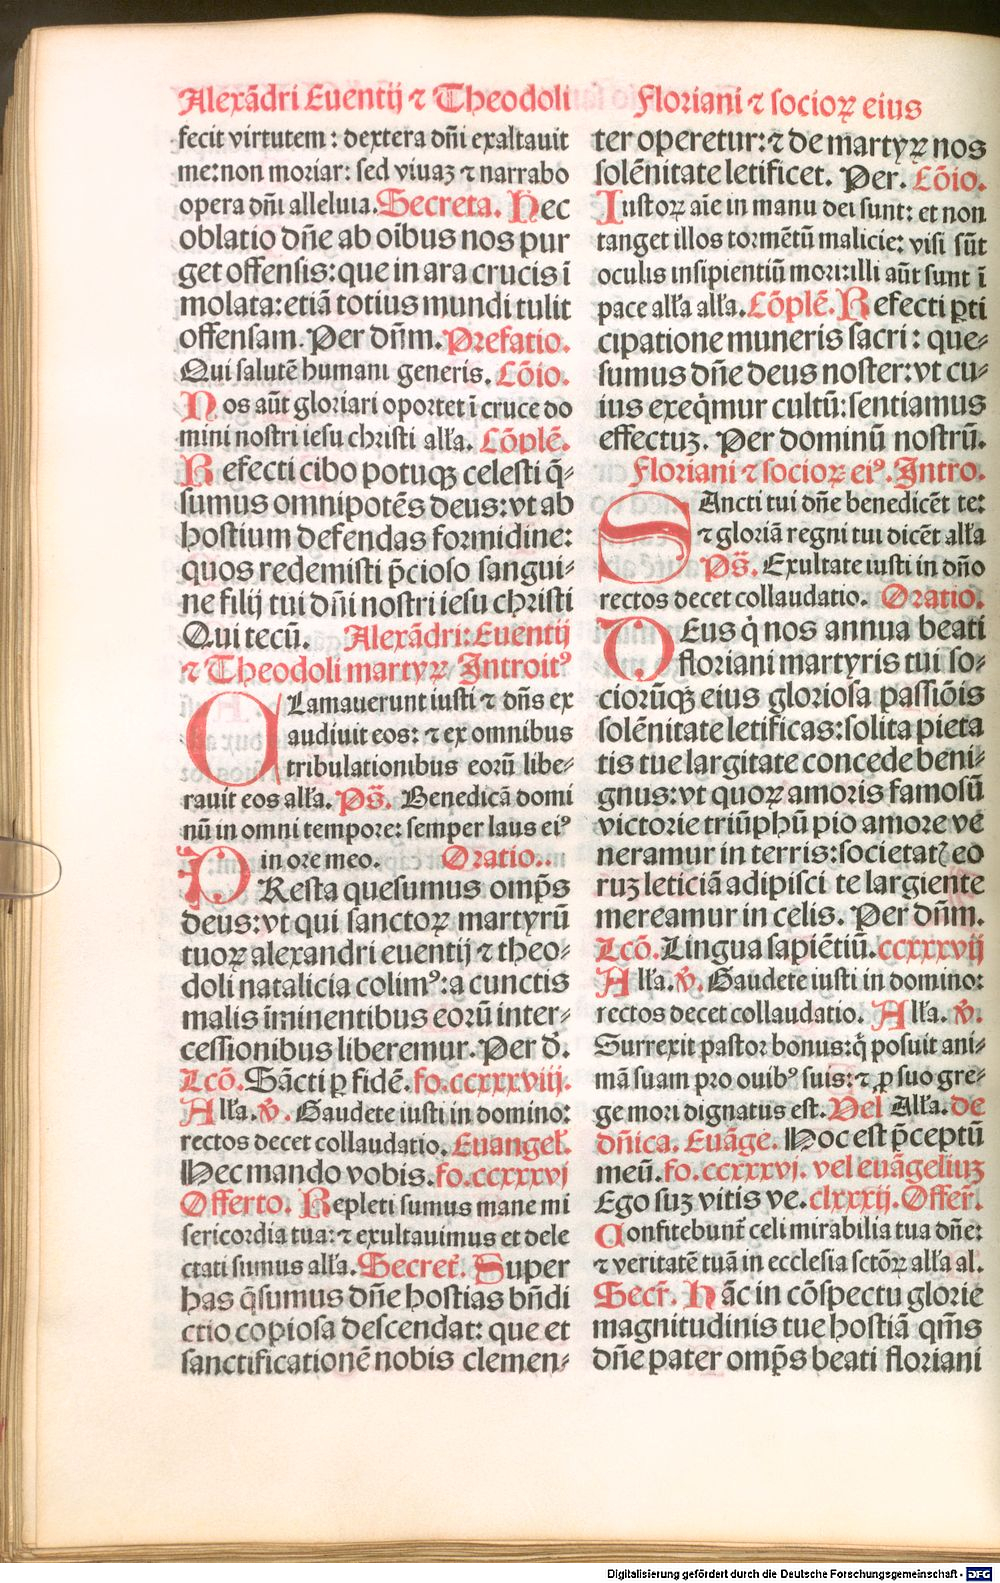 Alexãdri Euentij ⁊ Theodoli
fecit virtutem : dextera dñi exaltauit
me: non moriar: sed viuaꝫ ⁊ narrabo
opera dñi alleluia. Secreta. Hec
oblatio dñe ab oĩbus nos pur
get offensis: que in ara crucis ĩ
molata: etiã totius mundi tulit
offensam. Per dñm. Prefatio.
Qui salutẽ humani generis. Cõio.
Nos aũt gloriari oportet ĩ cruce do
mini nostri iesu christi alła. Cõplẽ.
Refecti cibo potuqꝫ celesti q̃-
sumus omnipotẽs deus: vt ab
hostium defendas formidine:
quos redemisti p̃cioso sangui-
ne filij tui dñi nostri iesu christi
Qui tecũ. Alexãdri: Euentij
⁊ Theodoli martyꝝ Introitꝰ
CLamauerunt iusti ⁊ dñs ex
audiuit eos: ⁊ ex omnibus
tribulationibus eorũ libe-
rauit eos alła. Ps̃. Benedicã domi
nũ in omni tempore: semper laus eiꝰ
in ore meo. Oratio..
PResta quesumus omp̃s
deus: vt qui sanctoꝝ martyrũ
tuoꝝ alexandri euentij ⁊ theo-
doli natalicia colimꝰ: a cunctis
malis ĩminentibus eorũ inter-
cessionibus liberemur. Per d̃.
Lcõ. Sãcti ꝑ fidẽ. fo. ccxxxviij.
Alła. ℣. Gaudete iusti in domino:
rectos decet collaudatio. Euangel̃.
Hec mando vobis. fo. ccxxxvj
Offerto. Repleti sumus mane mi
sericordia tua: ⁊ exultauimus et dele
ctati sumus alła. Secret̃. Super
has q̃sumus dñe hostias bñdi
ctio copiosa descendat: que et
sanctificationẽ nobis clemen-
Floriani ⁊ socioꝝ eius
ter operetur: ⁊ de martyꝝ nos
solẽnitate letificet. Per. Cõio.
Iustoꝝ aĩe in manu dei sunt: et non
tanget illos tormẽtũ malicie: visi sũt
oculis insipientiũ mori: illi aũt sunt ĩ
pace alła alła. Cõplẽ. Refecti ꝑti
cipatione muneris sacri : que-
sumus dñe deus noster: vt cu-
ius exeq̃mur cultũ: sentiamus
effectuꝫ. Per dominũ nostrũ.
Floriani ⁊ socioꝝ eiꝰ. Intro.
SAncti tui dñe benedicẽt te:
⁊ gloriã regni tui dicẽt alła
Ps̃. Exultate iusti in dño
rectos decet collaudatio. Oratio.
DEus q̃ nos annua beati
floriani martyris tui so-
ciorũqꝫ eius gloriosa passiõis
solẽnitate letificas: solita pieta
tis tue largitate concede beni-
gnus: vt quoꝝ amoris famosũ
victorie triũphũ pio amore ve
neramur in terris: societatꝭ eo
ruꝫ leticiã adipisci te largiente
mereamur in celis. Per dñm.
Lcõ. Lingua sapiẽtiũ. ccxxxvij
Alła. ℣. Gaudete iusti in domino:
rectos decet collaudatio. Alła. ℣.
Surrexit pastor bonus: q̃ posuit ani-
mã suam pro ouibꝰ suis: ⁊ ꝓ suo gre-
ge mori dignatus est. Vel Alła. de
dñica. Euãge. Hoc est p̃ceptũ
meũ. fo. ccxxxvj. vel euãgeliuꝫ
Ego suꝫ vitis ve. clxxxij. Offer̃.
Confitebunt̃ celi mirabilia tua dñe:
⁊ veritatẽ tuã in ecclesia sctõꝝ alła al.
Secr̃. Hãc in cõspectu glorie
magnitudinis tue hostiã qm̃s
dñe pater omp̃s beati floriani
Digitalisierung gefördert durch die Deutsche Forschungsgemeinschaft - DFG